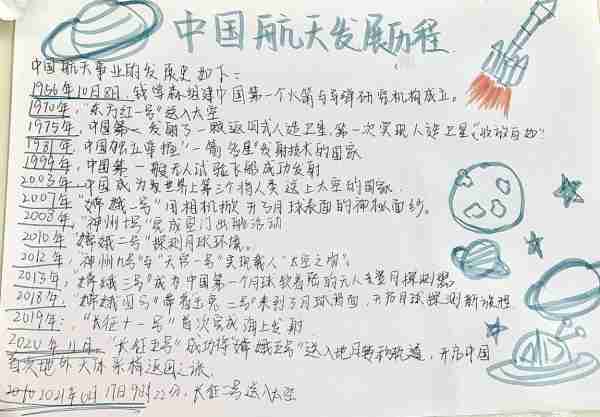 中国航天发展历程
中国航天事业的发展史如下：
1956年10月8日，钱学森组建中国第一个火箭与导弹研究机构成立。
1970年，"东方红一号"送入太空
1975年，中国第一发射了一颗返回式人造卫星，第一次实现人造卫星"收放自如"
1981年，中国独立掌握"一箭多星"发射技术的国家
1999年，中国第一艘无人试验飞船成功发射
2003年，中国成为世界上第三个将人类送上太空的国家
2007年，"嫦娥一号"用相机掀开了月球表面的神秘面纱。
2008年，"神州七号"完成空门出舱活动
2010年，"嫦娥二号"探测月球环境。
2012年，"神州九号"与"天宫一号"实现载人"太空之吻"。
2013年，嫦娥三号"成为中国第一个月球软着陆的无人登月探测器
2018年，"嫦娥四号"带着玉兔二号"来到了月球背面，开启月球探测新旅程
2019年："长征十一号"首次完成海上发射
2020年11月，"长征五号"成功将嫦娥五号"送入地月转移轨道，开启中国
首次地外天体采样返回之旅。
2021年6月17日9时22分，长征二号送入太空